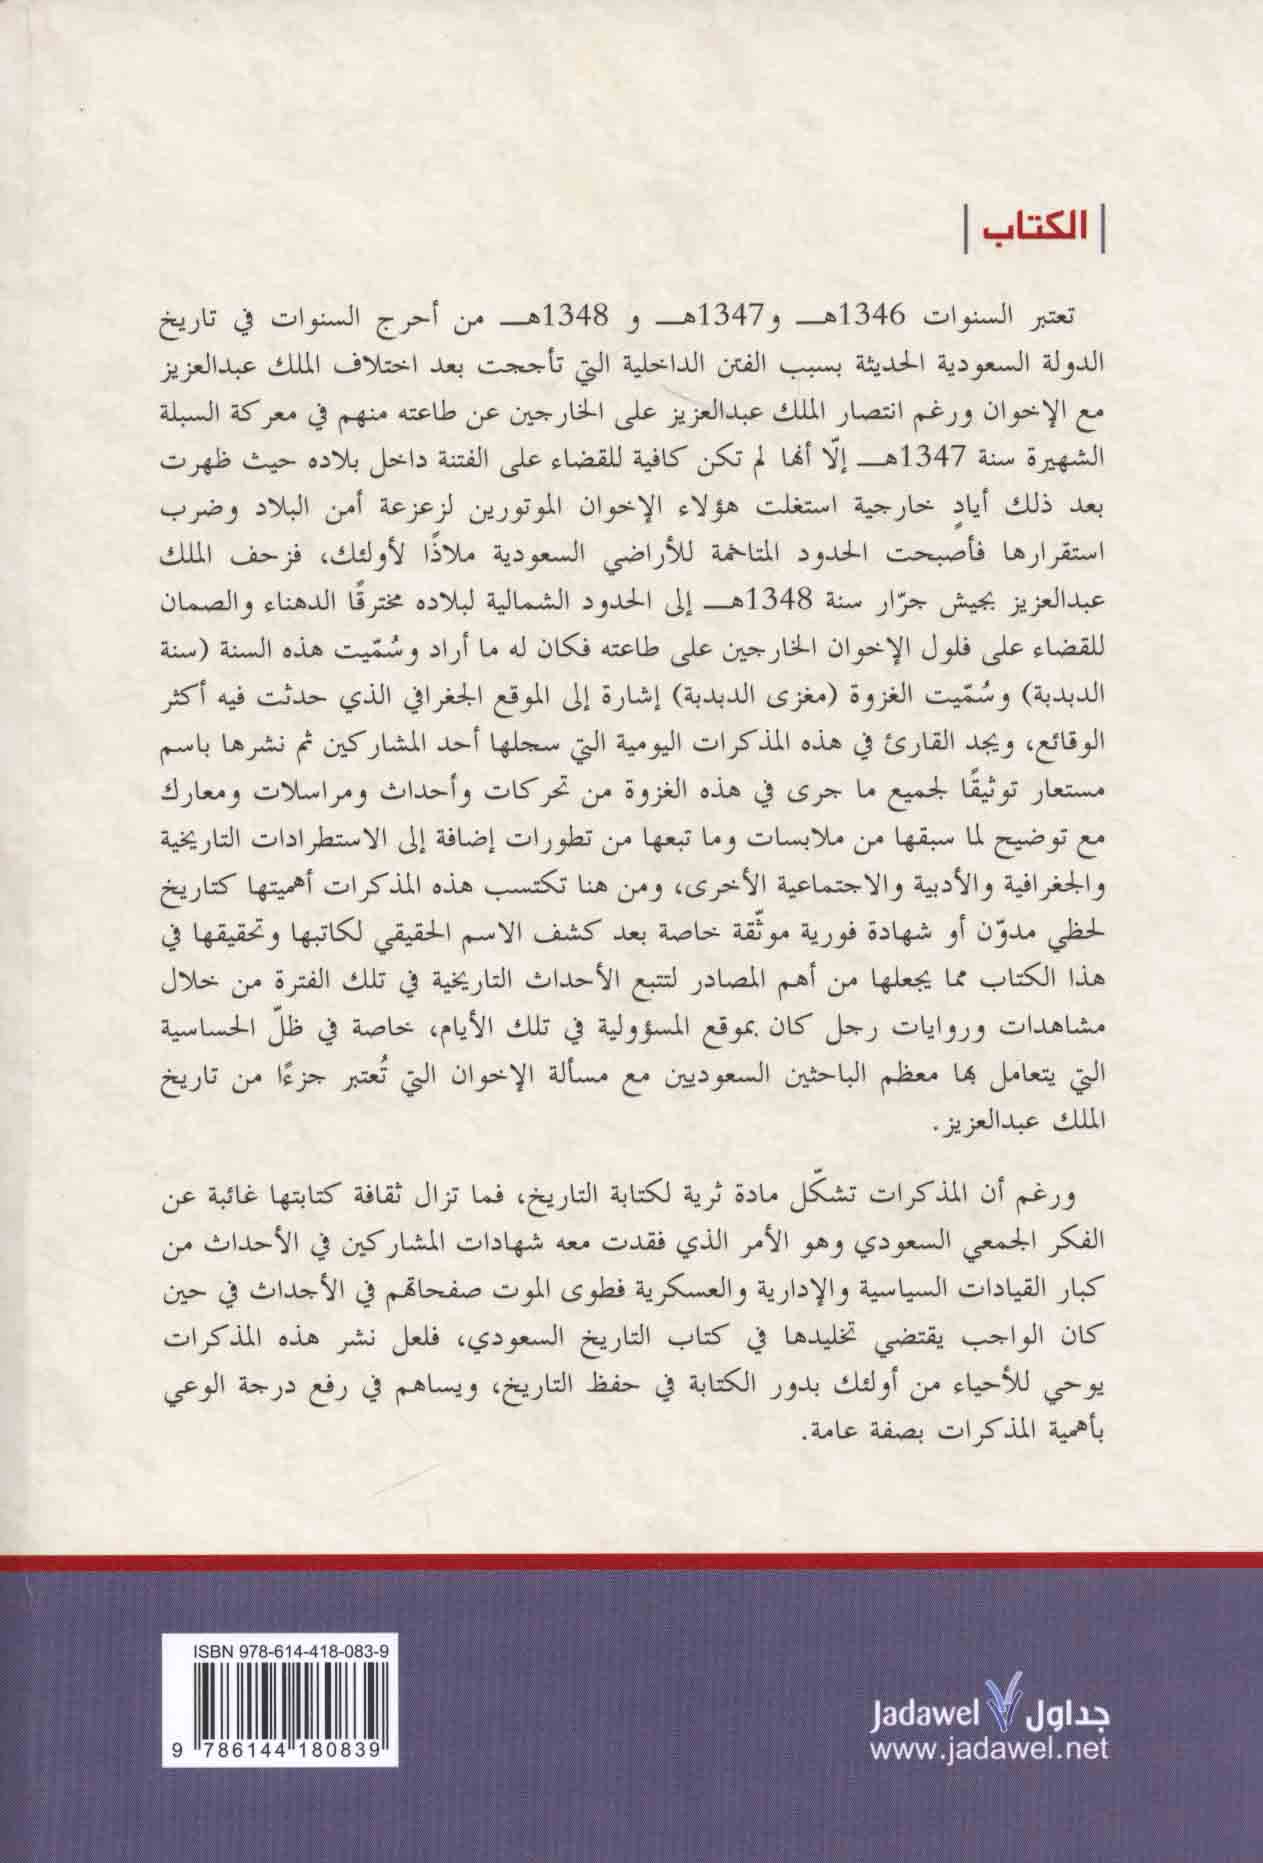 الكتاب
تعتبر السنوات 1346هـ و1347هـ و 1348هـ من أحرج السنوات في تاريخ
الدولة السعودية الحديثة بسبب الفتن الداخلية التي تأججت بعد اختلاف الملك عبدالعزيز
مع الإخوان ورغم انتصار الملك عبدالعزيز على الخارجين عن طاعته منهم في معركة السبلة
الشهيرة سنة 1347هـ إلّا أنها لم تكن كافية للقضاء على الفتنة داخل بلاده حيث ظهرت
بعد ذلك أيادٍ خارجية استغلت هؤلاء الإخوان الموتورين لزعزعة أمن البلاد وضرب
استقرارها فأصبحت الحدود المتاخمة للأراضي السعودية ملاذًا لأولئك، فزحف الملك
عبدالعزيز بجيش جرّار سنة 1348هـ إلى الحدود الشمالية لبلاده مخترقًا الدهناء والصمان
للقضاء على فلول الإخوان الخارجين على طاعته فكان له ما أراد وسُمّيت هذه السنة (سنة
الدبدبة) وسُمّيت الغزوة (مغزى الدبدبة) إشارة إلى الموقع الجغرافي الذي حدثت فيه أكثر
الوقائع، ويجد القارئ في هذه المذكرات اليومية التي سجلها أحد المشاركين ثم نشرها باسم
مستعار توثيقًا لجميع ما جرى في هذه الغزوة من تحركات وأحداث ومراسلات ومعارك
مع توضيح لما سبقها من ملابسات وما تبعها من تطورات إضافة إلى الاستطرادات التاريخية
والجغرافية والأدبية والاجتماعية الأخرى، ومن هنا تكتسب هذه المذكرات أهميتها كتاريخ
لحظي مدوّن أو شهادة فورية موثّقة خاصة بعد كشف الاسم الحقيقي لكاتبها وتحقيقها في
هذا الكتاب مما يجعلها من أهم المصادر لتتبع الأحداث التاريخية في تلك الفترة من خلال
مشاهدات وروايات رجل كان بموقع المسؤولية في تلك الأيام، خاصة في ظلّ الحساسية
التي يتعامل بها معظم الباحثين السعوديين مع مسألة الإخوان التي تُعتبر جزءًا من تاريخ
الملك عبدالعزيز.
ورغم أن المذكرات تشكّل مادة ثرية لكتابة التاريخ، فما تزال ثقافة كتابتها غائبة عن
الفكر الجمعي السعودي وهو الأمر الذي فقدت معه شهادات المشاركين في الأحداث من
كبار القيادات السياسية والإدارية والعسكرية فطوى الموت صفحاتهم في الأجداث في حين
كان الواجب يقتضي تخليدها في كتاب التاريخ السعودي، فلعل نشر هذه المذكرات
يوحي للأحياء من أولئك بدور الكتابة في حفظ التاريخ، ويساهم في رفع درجة الوعي
بأهمية المذكرات بصفة عامة.
ISBN 978-614-418-083-9
9 786144 180839
جداول Jadawel
www.jadawel.net